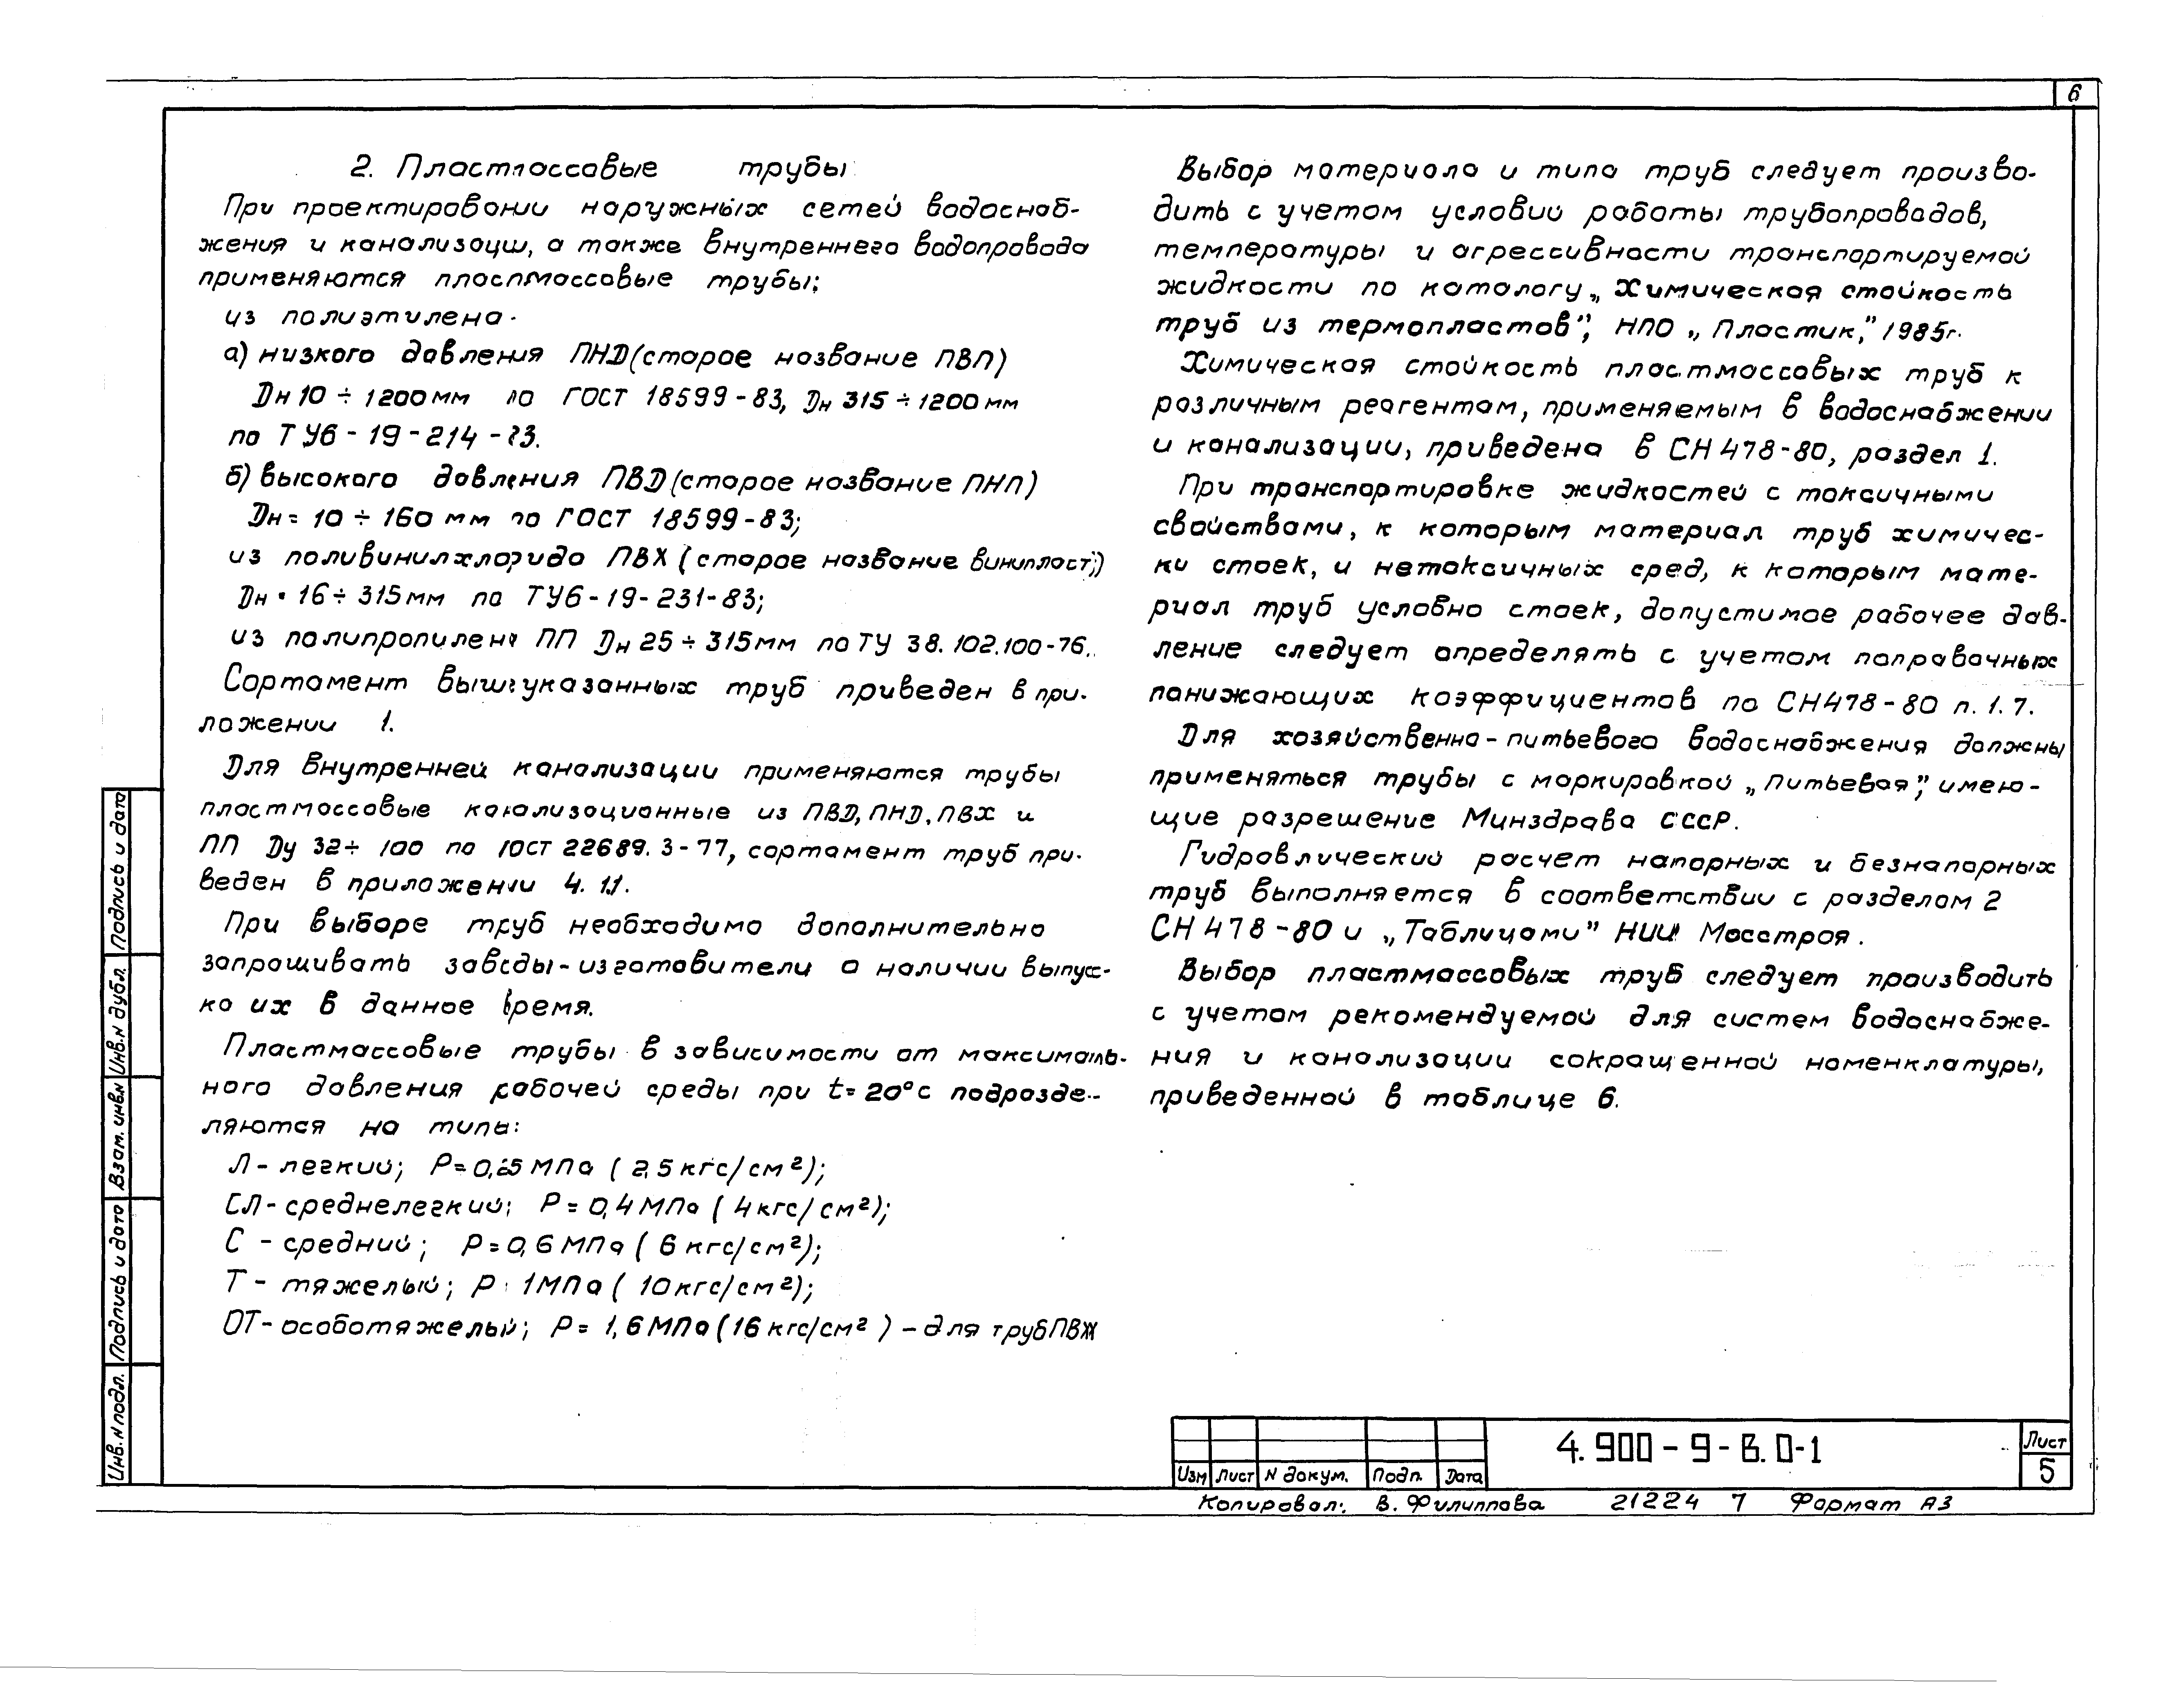 6
2. Пластмассовые трубы
При проектировании наружных сетей водоснаб-
жения и канализации, а также внутреннего водопровода
применяются пластмассовые трубы:
из полиэтилена
а) низкого давления ПНД (старое название ПВП)
Dн 10 ÷ 1200 мм по ГОСТ 18599-83, Dн 315 ÷ 1200 мм
по ТУ6-19-214-83.
б) высокого давления ПВД (старое название ПНП)
Dн = 10 ÷ 160 мм по ГОСТ 18599-83;
из поливинилхлорида ПВХ (старое название винипласт;)
Dн = 16 ÷ 315 мм по ТУ6-19-231-83;
из полипропилена ПП Dн 25 ÷ 315 мм по ТУ 38.102.100-76.
Сортамент вышеуказанных труб приведен в при-
ложении 1.
Для внутренней канализации применяются трубы
пластмассовые канализационные из ПВД, ПНД, ПВХ и
ПП Dу 32 ÷ 100 по ГОСТ 22689.3-77, сортамент труб при-
веден в приложении 4.11.
При выборе труб необходимо дополнительно
запрашивать заводы-изготовители о наличии выпус-
ка их в данное время.
Пластмассовые трубы в зависимости от максималь-
ного давления рабочей среды при t=20°С подразде-
ляются на типы:
Л - легкий; Р=0,25 МПа (2,5 кгс/см²);
СЛ - среднелегкий; Р=0,4 МПа (4 кгс/см²);
С - средний; Р=0,6 МПа (6 кгс/см²);
Т - тяжелый; Р 1 МПа (10 кгс/см²);
ОТ - особотяжелый; Р=1,6 МПа (16 кгс/см²) - для труб ПВХ
Выбор материала и типа труб следует произво-
дить с учетом условий работы трубопроводов,
температуры и агрессивности транспортируемой
жидкости по каталогу „Химическая стойкость
труб из термопластов", НПО „Пластик," 1985г.
Химическая стойкость пластмассовых труб к
различным реагентам, применяемым в водоснабжении
и канализации, приведена в СН 478-80, раздел 1.
При транспортировке жидкостей с токсичными
свойствами, к которым материал труб химичес-
ки стоек, и нетоксичных сред, к которым мате-
риал труб условно стоек, допустимое рабочее дав-
ление следует определять с учетом поправочных
понижающих коэффициентов по СН478-80 п.1.7.
Для хозяйственно-питьевого водоснабжения должны
применяться трубы с маркировкой „питьевая", имею-
щие разрешение Минздрава СССР.
Гидравлический расчет напорных и безнапорных
труб выполняется в соответствии с разделом 2
СН 478-80 и „Таблицами" НИИ Мосстроя.
Выбор пластмассовых труб следует производить
с учетом рекомендуемой для систем водоснабже-
ния и канализации сокращенной номенклатуры,
приведенной в таблице 6.
Инв.N подл. Подпись и дата Взам. инв.N Инв.N дубл. Подпись и дата
Изм Лист N докум. Подп. Дата
4.900-9-В.0-1
Лист
5
Копировал: В. Филиппова 21224 7 Формат А3